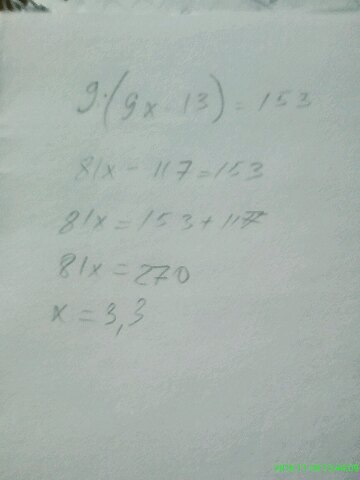 9·(9x 13) = 153
81x - 117 = 153
81x = 153 + 117
81x = 270
x = 3,3